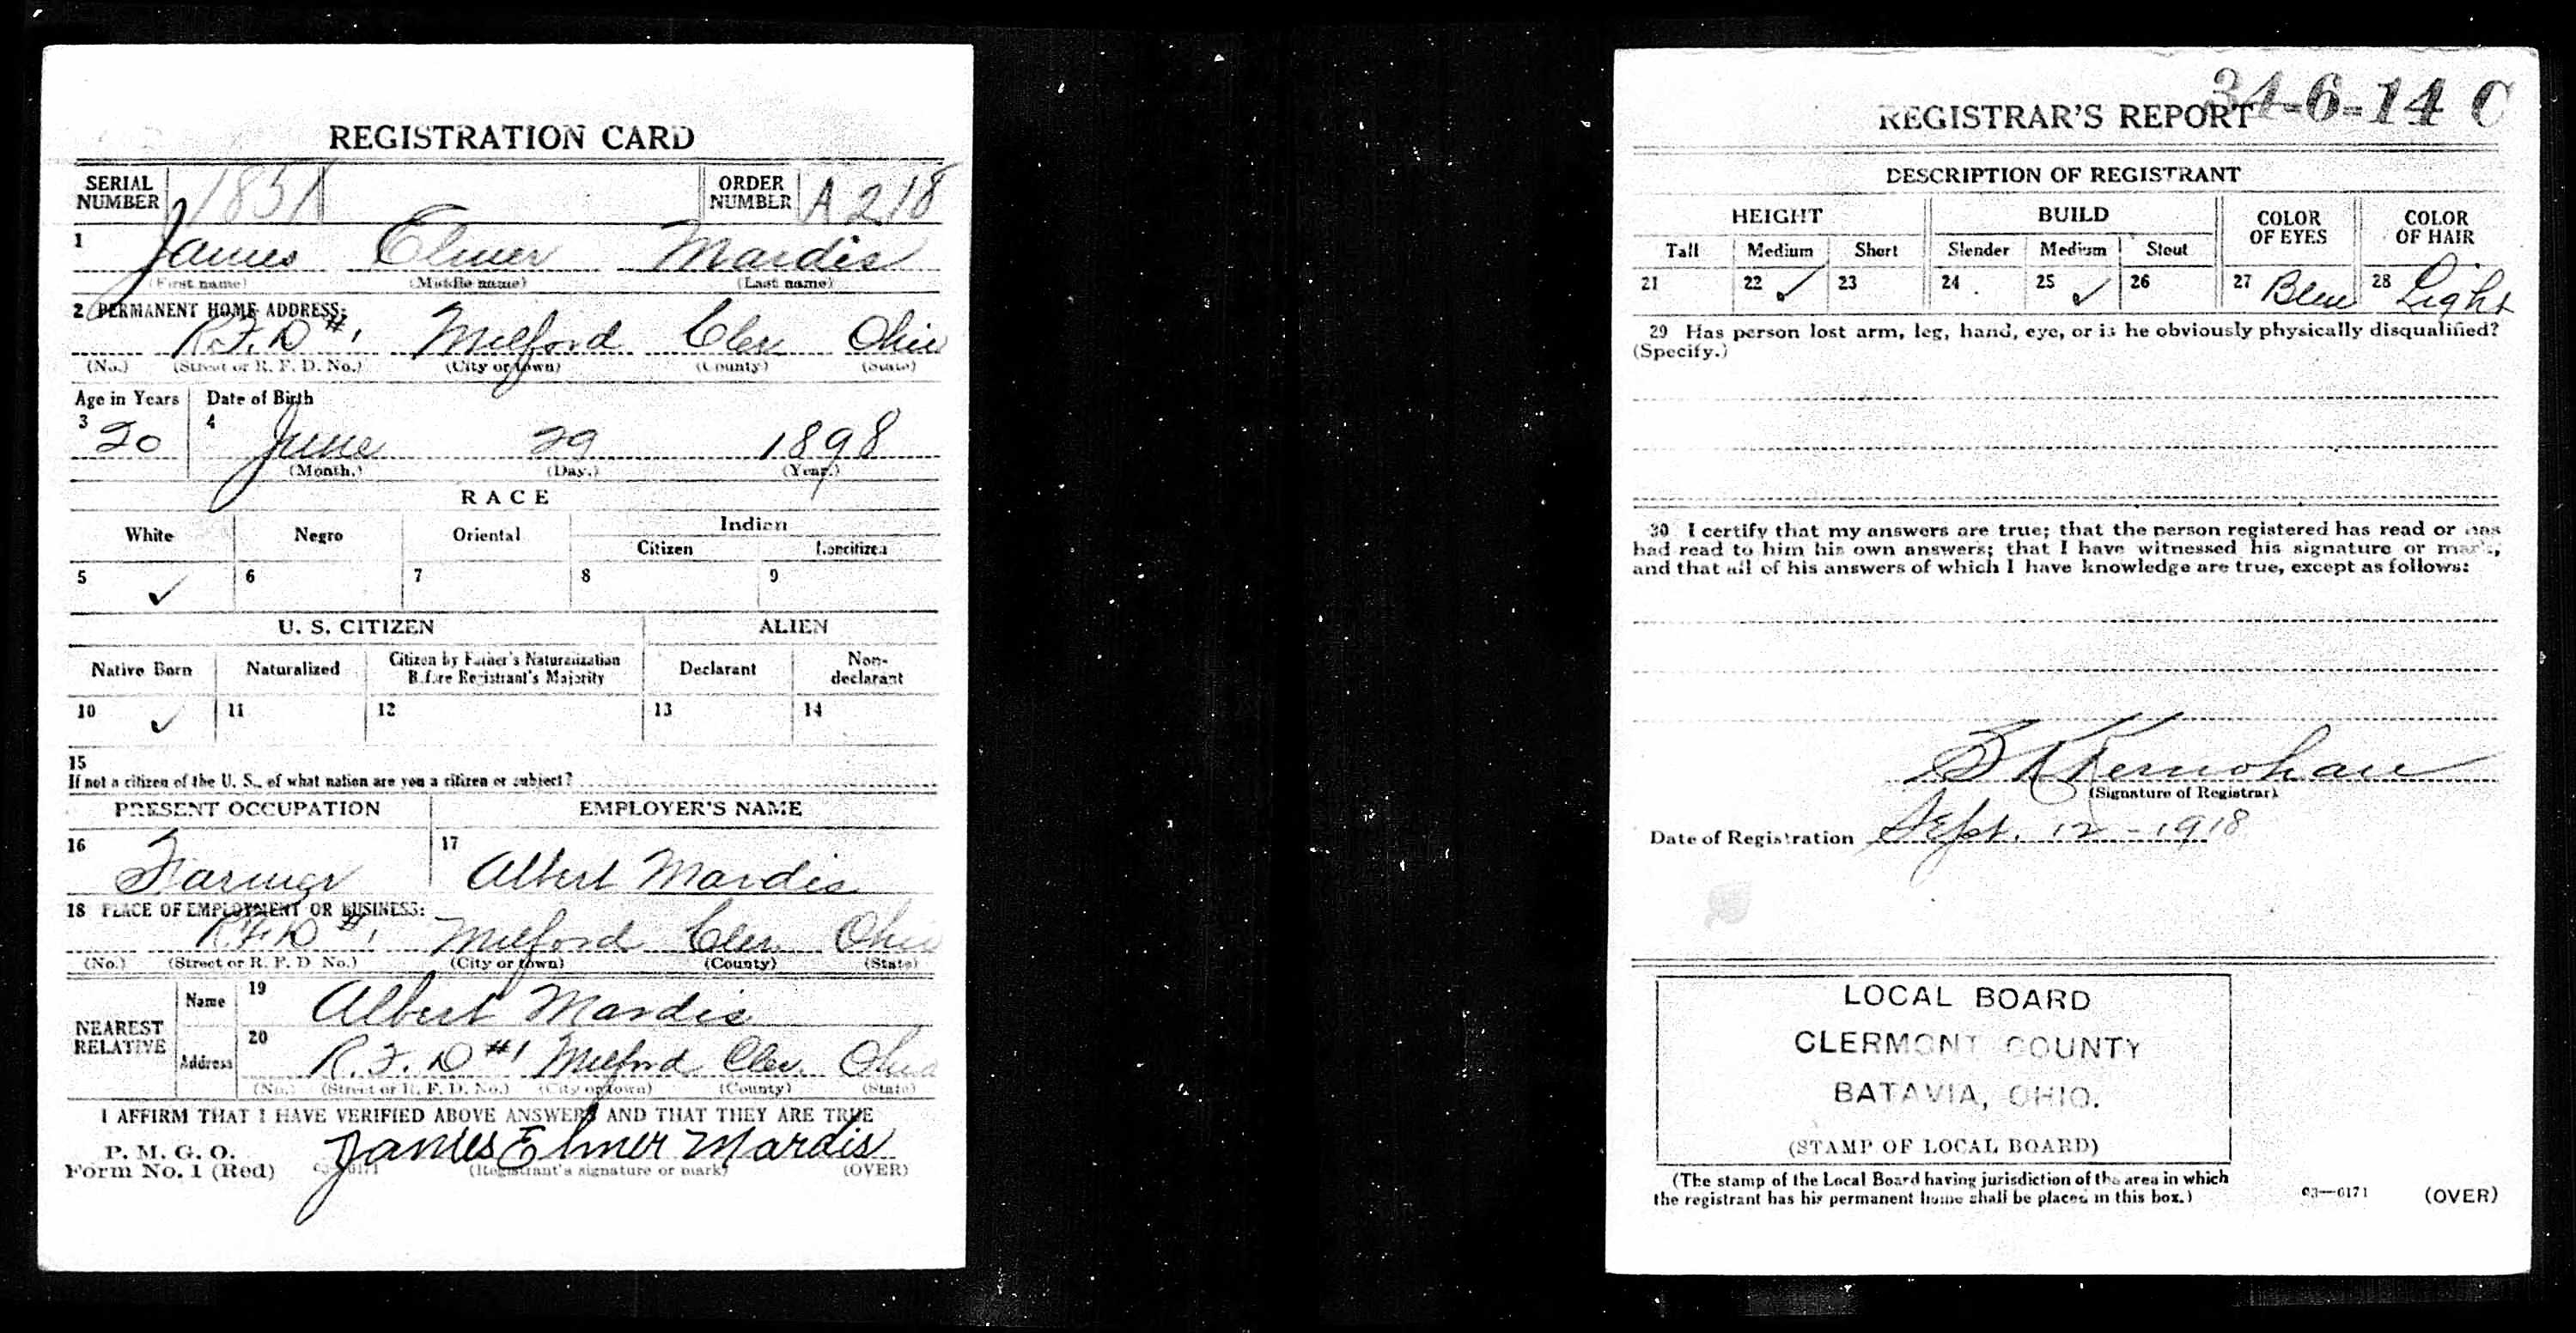 REGISTRATION CARD
SERIAL NUMBER 1831 ORDER NUMBER A 218
1 James Elmer Mardis
(First name) (Middle name) (Last name)
2 PERMANENT HOME ADDRESS:
R.F.D #1 Milford Cler Ohio
(No.) (Street or R. F. D. No.) (City or town) (County) (State)
Age in Years Date of Birth
3 20 4 June 29 1898
(Month.) (Day.) (Year.)
RACE
White Negro Oriental Indian
Citizen Noncitizen
5 ✓ 6 7 8 9
U. S. CITIZEN ALIEN
Native Born Naturalized Citizen by Father's Naturalization Before Registrant's Majority Declarant Non-declarant
10 ✓ 11 12 13 14
15
If not a citizen of the U. S., of what nation are you a citizen or subject?
PRESENT OCCUPATION EMPLOYER'S NAME
16 Farmer 17 Albert Mardis
18 PLACE OF EMPLOYMENT OR BUSINESS:
R.F.D #1 Milford Cler Ohio
(No.) (Street or R. F. D. No.) (City or town) (County) (State)
NEAREST RELATIVE Name 19 Albert Mardis
Address 20 R.F.D #1 Milford Cler. Ohio
(No.) (Street or R. F. D. No.) (City or town) (County) (State)
I AFFIRM THAT I HAVE VERIFIED ABOVE ANSWERS AND THAT THEY ARE TRUE
P. M. G. O.
Form No. 1 (Red) 03-6171 James Elmer Mardis
(Registrant's signature or mark) (OVER)
34-6-14 C
REGISTRAR'S REPORT
DESCRIPTION OF REGISTRANT
HEIGHT BUILD COLOR OF EYES COLOR OF HAIR
Tall Medium Short Slender Medium Stout
21 22 ✓ 23 24 25 ✓ 26 27 Blue 28 Light
29 Has person lost arm, leg, hand, eye, or is he obviously physically disqualified?
(Specify.)
30 I certify that my answers are true; that the person registered has read or has
had read to him his own answers; that I have witnessed his signature or mark,
and that all of his answers of which I have knowledge are true, except as follows:
Kernohan
(Signature of Registrar)
Date of Registration Sept. 12 - 1918
LOCAL BOARD
CLERMONT COUNTY
BATAVIA, OHIO.
(STAMP OF LOCAL BOARD)
(The stamp of the Local Board having jurisdiction of the area in which
the registrant has his permanent home shall be placed in this box.)
03—6171 (OVER)